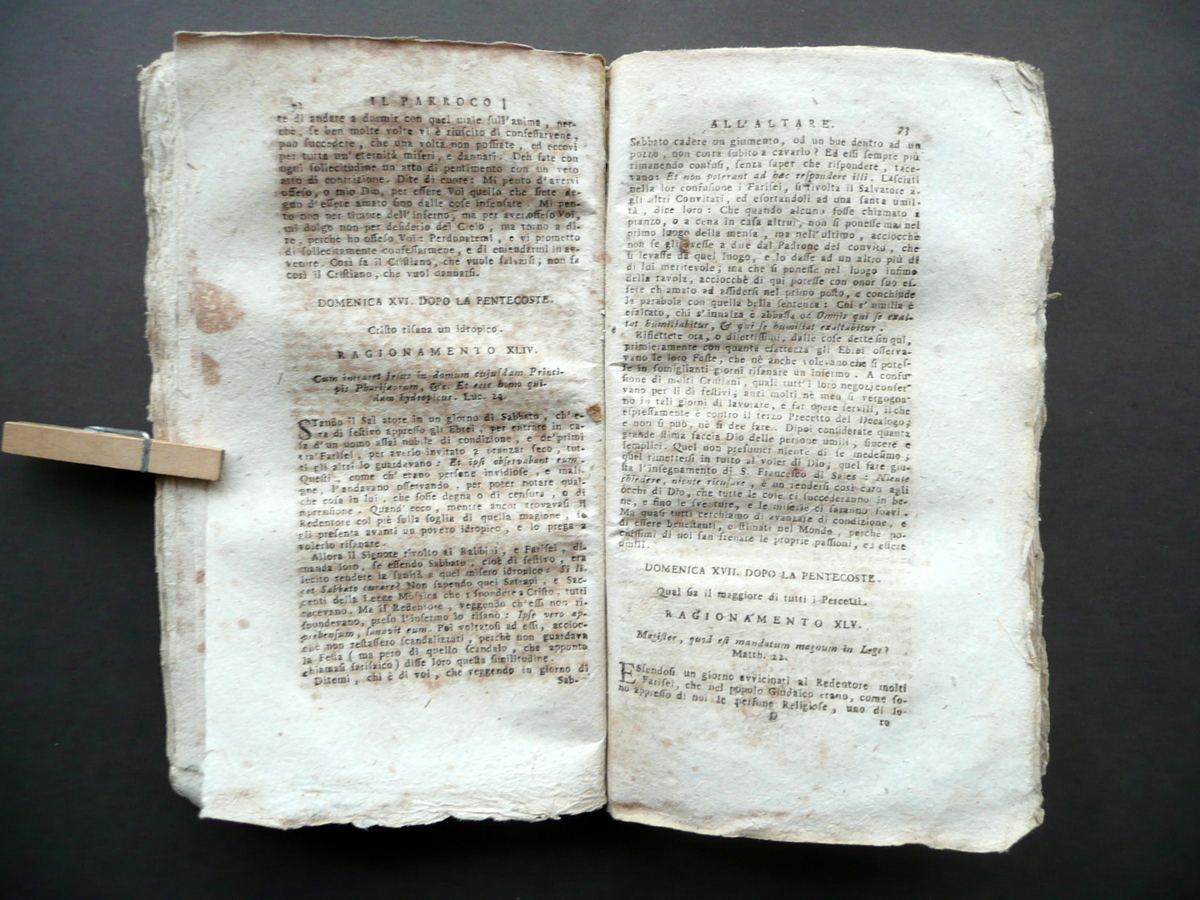 72 IL PARROCO
te di andare a dormir con quel male sull'anima, per-
chè, se ben molte volte vi è riuscito di confessarvene,
può succedere, che una volta non possiate, ed eccovi
per tutta un'eternità miseri, e dannati. Deh fate con
ogni sollecitudine un atto di pentimento con un vero
atto di contrizione. Dite di cuore: Mi pento d'avervi
offeso, o mio Dio, per essere Voi quello che siete de-
gno d'essere amato sino dalle cose insensate. Mi pen-
to non per timore dell'inferno, ma per aver offeso Voi,
mi dolgo non per desiderio del Cielo, ma torno a di-
re, perchè ho offeso Voi: Perdonatemi, e vi prometto
di sollecitamente confessarmene, e di emendarmi in av-
venire. Così fa il Cristiano, che vuole salvarsi; non fa
così il Cristiano, che vuol dannarsi.
DOMENICA XVI. DOPO LA PENTECOSTE.
Cristo risana un idropico.
RAGIONAMENTO XLIV.
Cum intraret Jesus in domum cujusdam Princi-
pis Pharisæorum, &c. Et ecce homo qui-
dam hydropicus. Luc. 24.
STando il Salvatore in un giorno di Sabbato, ch'e-
ra di festivo appresso gli Ebrei, per entrare in ca-
sa d'un uomo assai nobile di condizione, e de' primi
tra' Farisei, per averlo invitato a pranzar seco, tut-
ti gli altri lo guardavano: Et ipsi observabant eum.
Questi, come ch'erano persone invidiose, e mali-
gne, l'andavano osservando, per poter notare qual-
che cosa in lui, che fosse degna o di censura, o di
riprensione. Quand'ecco, mentre ancor trovavasi il
Redentore col piè sulla soglia di quella magione, se
gli presenta avanti un povero idropico, e lo prega a
volerlo risanare.
Allora il Signore rivolto ai Rabbini, e Farisei, di-
manda loro, se essendo Sabbato, cioè dì festivo, era
lecito rendere la sanità a quel misero idropico: Si li-
cet Sabbato curare? Non sapendo quei Satrapi, e Sac-
centi della Legge Mosaica che rispondere a Cristo, tutti
tacevano. Ma il Redentore, veggendo ch'essi non ri-
spondevano, preso l'infermo lo risanò: Ipse vero ap-
prehensum, sanavit eum. Poi voltatosi ad essi, accioc-
chè non restassero scandalizzati, perchè non guardava
la Festa (ma però di quello scandalo, che appunto
chiamasi farisaico) disse loro questa similitudine.
Ditemi, chi è di voi, che veggendo in giorno di
Sab-
ALL'ALTARE. 73
Sabbato cadere un giumento, od un bue dentro ad un
pozzo, non corra subito a cavarlo? Ed essi sempre più
rimanendo confusi, senza saper che rispondere, tace-
vano: Et non poterant ad hæc respondere illi. Lasciati
nella lor confusione i Farisei, si rivolta il Salvatore a-
gli altri Convitati, ed esortandoli ad una santa umil-
tà, dice loro: Che quando alcuno fosse chiamato a
pranzo, o a cena in casa altrui, non si ponesse mai nel
primo luogo della mensa, ma nell'ultimo, acciocchè
non se gli avesse a dire dal Padrone del convito, che
si levasse da quel luogo, e lo dasse ad un altro più di
di lui meritevole; ma che si ponesse nel luogo infimo
della tavola, acciocchè di quì potesse con onor suo es-
sere chiamato ad assidersi nel primo posto, e conchiude
la parabola con quella bella sentenza: Chi s'umilia è
esaltato, chi s'innalza è abbassato: Omnis qui se exal-
tat humiliabitur, & qui se humiliat exaltabitur.
Riflettete ora, o dilettissimi, dalle cose dette sin quì,
primieramente con quanta esattezza gli Ebrei osserva-
vano le loro Feste, che nè anche volevano che si potes-
se in somiglianti giorni risanare un infermo. A confu-
sione di molti Cristiani, quali tutt'i loro negozj conser-
vano per li dì festivi; anzi molti nè meu si vergogna-
no in tali giorni di lavorare, e far opere servili, il che
espressamente è contro il terzo Precetto del Decalogo;
e non si può, nè si dee fare. Dipoi considerate quanta
grande stima faccia Dio delle persone umili, sincere e
semplici. Quel non presumer niente di se medesimo;
quel rimettersi in tutto al voler di Dio; quel fare giu-
sta l'insegnamento di S. Francesco di Sales: Niente
chiedere, niente ricusare, è un rendersi così caro agli
occhi di Dio, che tutte le cose ci succederanno in be-
ne, e fino le sventure, e le miserie ci saranno soavi.
Ma quasi tutti cerchiamo di avanzare di condizione, e
di essere benestanti, ostinati nel Mondo, perchè po-
chissimi di noi san frenare le proprie passioni, ed essere
umili.
DOMENICA XVII. DOPO LA PENTECOSTE.
Qual sia il maggiore di tutti i Precetti.
RAGIONAMENTO XLV.
Magister, quod est mandatum magnum in Lege?
Matth. 22.
ESsendosi un giorno avvicinati al Redentore molti
Farisei, che nel popolo Giudaico erano, come so-
no appresso di noi le persone Religiose, uno di lo-
D ro